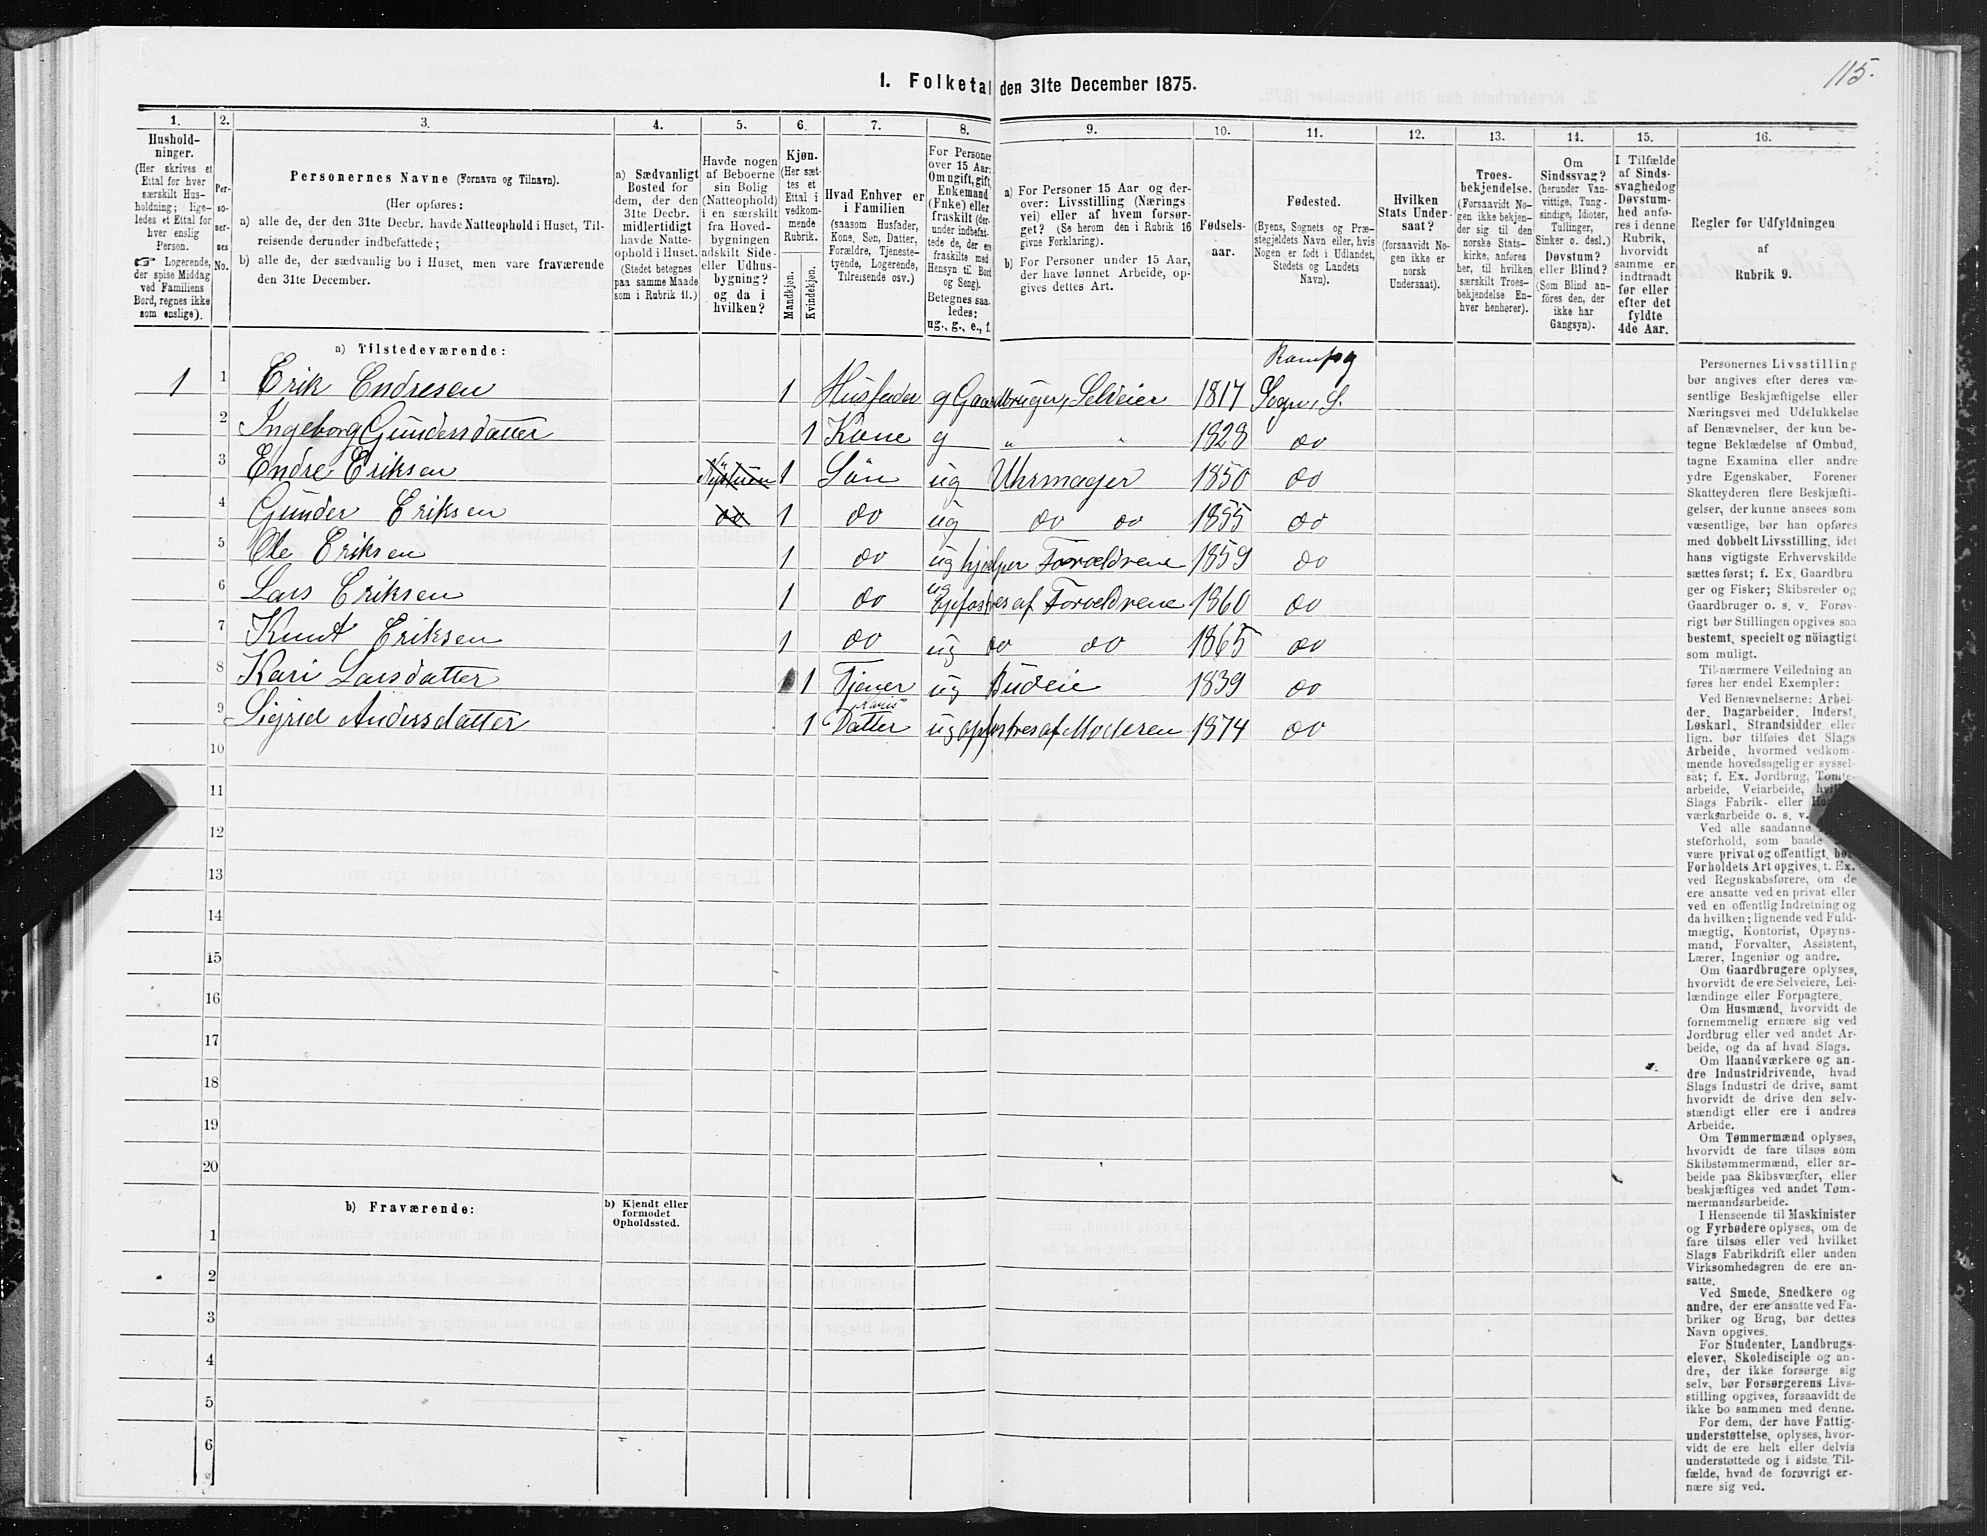 115.
1. Folketal den 31te December 1875.
1. 2. 3. 4. 5. 6. 7. 8. 9. 10. 11. 12. 13. 14. 15. 16.
Hushold-
ninger.
(Her skrives et
Ettal for hver
særskilt Hus-
holdning; lige-
ledes et Ettal for
hver enslig
Person.
☞ Logerende,
der spise Middag
ved Familiens
Bord, regnes ikke
som enslige).
Per-
so-
ner-
nes
No.
Personernes Navne (Fornavn og Tilnavn).
(Her opføres:
a) alle de, der den 31te Decbr. havde Natteophold i Huset, Til-
reisende derunder indbefattede;
b) alle de, der sædvanlig bo i Huset, men vare fraværende
den 31te December.
a) Sædvanligt
Bosted for
dem, der den
31te Decbr.
midlertidigt
havde Natte-
ophold i Huset.
(Stedet betegnes
paa samme Maade
som i Rubrik 11.)
Havde nogen
af Beboerne
sin Bolig
(Natteophold)
i en særskilt
fra Hoved-
bygningen
adskilt Side-
eller Udhus-
bygning?
og da i
hvilken?
Kjøn.
(Her sæt-
tes et
Ettal i
vedkom-
mende
Rubrik.
Mandkjøn.
Kvindekjøn.
Hvad Enhver er
i Familien
(saasom Husfader,
Kone, Søn, Datter,
Forældre, Tjeneste-
tyende, Logerende,
Tilreisende osv.)
For Personer
over 15 Aar:
Om ugift, gift,
Enkemand
(Enke) eller
fraskilt (der-
under indbefat-
tede de, der ere
fraskilte med
Hensyn til Bord
og Seng).
Betegnes saa-
ledes:
ug., g., e., f.
a) For Personer 15 Aar og der-
over: Livsstilling (Nærings
vei) eller af hvem forsør-
get? (Se herom den i Rubrik 16
givne Forklaring).
b) For Personer under 15 Aar,
der have lønnet Arbeide, op-
gives dettes Art.
Fødsels-
aar.
Fødested.
(Byens, Sognets og Præ-
stegjeldets Navn eller, hvis
Nogen er født i Udlandet,
Stedets og Landets
Navn).
Hvilken
Stats Under-
saat?
(forsaavidt No-
gen ikke er
norsk
Undersaat).
Troes-
bekjendelse.
(Forsaavidt No-
gen ikke bekjen-
der sig til den
norske Stats-
kirke, anføres
her, til hvilken
særskilt Troes-
bekjendelse En-
hver henhører).
Om
Sindssvag?
(herunder Van-
vittige, Tung-
sindige, Idioter,
Tullinger,
Sinker o. desl.)
Døvstum?
eller Blind?
(Som Blind an-
føres den, der
ikke har
Gangsyn).
I Tilfælde
af Sinds-
svaghed og
Døvstum-
hed anfø-
res i denne
Rubrik,
hvorvidt
samme er
indtraadt
før eller
efter det
fyldte
4de Aar.
Regler for Udfyldningen
af
Rubrik 9.
a) Tilstedeværende:
1 1 Erik Endresen 1 Husfader g Gaardbruger, Selveier 1817 Sogn, S.
2 Ingeborg Gundersdatter 1 Kone g " " 1828 do
3 Endre Eriksen 1 Sön ug Uhrmager 1850 do
4 Gunder Eriksen do 1 do ug do do 1855 do
5 Ole Eriksen 1 do ug hjelper Forældrene 1859 do
6 Lars Eriksen 1 do ug Opfostres af Forældrene 1860 do
7 Knut Eriksen 1 do ug do do 1865 do
8 Kari Larsdatter 1 Tjener ug Budeie 1839 do
9 Sigrid Andersdatter 1 Karis Datter ug opfostres af Moderen 1874 do
10
11
12
13
14
15
16
17
18
19
20
b) Fraværende:
b) Kjendt eller
formodet
Opholdssted.
1
2
3
4
5
6
Personernes Livsstilling
bør angives efter deres væ-
sentlige Beskjæftigelse eller
Næringsvei med Udelukkelse
af Benævnelser, der kun be-
tegne Beklædelse af Ombud,
tagne Examina eller andre
ydre Egenskaber. Forener
Skatteyderen flere Beskjæfti-
gelser, der kunne ansees som
væsentlige, bør han opføres
med dobbelt Livsstilling, idet
hans vigtigste Erhvervskilde
sættes først; f. Ex. Gaardbru
ger og Fisker; Skibsreder og
Gaardbruger o. s. v. Forøv-
rigt bør Stillingen opgives saa
bestemt, specielt og nöiagtigt
som muligt.
Til nærmere Veiledning an
føres her endel Exempler:
Ved Benævnelserne: Arbei-
der, Dagarbeider, Inderst,
Løskarl, Strandsidder eller
lign. bør tilføies det Slags
Arbeide, hvormed vedkom-
mende hovedsagelig er syssel-
sat; f. Ex. Jordbrug, Tomte-
arbeide, Veiarbeide,
Slags Fabrik- eller
værksarbeide o. s. v.
Ved alle saadanne
steforhold, som baade
være privat og offentligt, bør
Forholdets Art opgives, t. Ex.
ved Regnskabsførere, om de
ere ansatte ved en privat eller
ved en offentlig Indretning og
da hvilken; lignende ved Fuld-
mægtig, Kontorist, Opsyns-
mand, Forvalter, Assistent,
Lærer, Ingeniør og andre.
Om Gaardbrugere oplyses,
hvorvidt de ere Selveiere, Lei-
lændinge eller Forpagtere.
Om Husmænd, hvorvidt de
fornemmelig ernære sig ved
Jordbrug eller ved andet Ar-
beide, og da af hvad Slags.
Om Haandværkere og an-
dre Industridrivende, hvad
Slags Industri de drive, samt
hvorvidt de drive den selv-
stændigt eller ere i andres
Arbeide.
Om Tømmermænd oplyses,
hvorvidt de fare tilsøs som
Skibstømmermænd, eller ar-
beide paa Skibsværfter, eller
beskjæftiges ved andet Tøm-
mermandsarbeide.
I Henseende til Maskinister
og Fyrbødere oplyses, om de
fare tilsøs eller ved hvilket
Slags Fabrikdrift eller anden
Virksomhedsgren de ere an-
satte.
Ved Smede, Snedkere og
andre, der ere ansatte ved Fa-
briker og Brug, bør dettes
Navn opgives.
For Studenter, Landbrugs-
elever, Skoledisciple og an-
dre, der ikke forsørge sig
selv, bør Forsørgerens Livs-
stilling opgives, forsaavidt de
ikke bo sammen med denne.
For dem, der have Fattig-
understøttelse, oplyses, hvor-
vidt de ere helt eller delvis
understøttede og i sidste Til-
fælde, hvad de forøvrigt er-
nære sig ved.